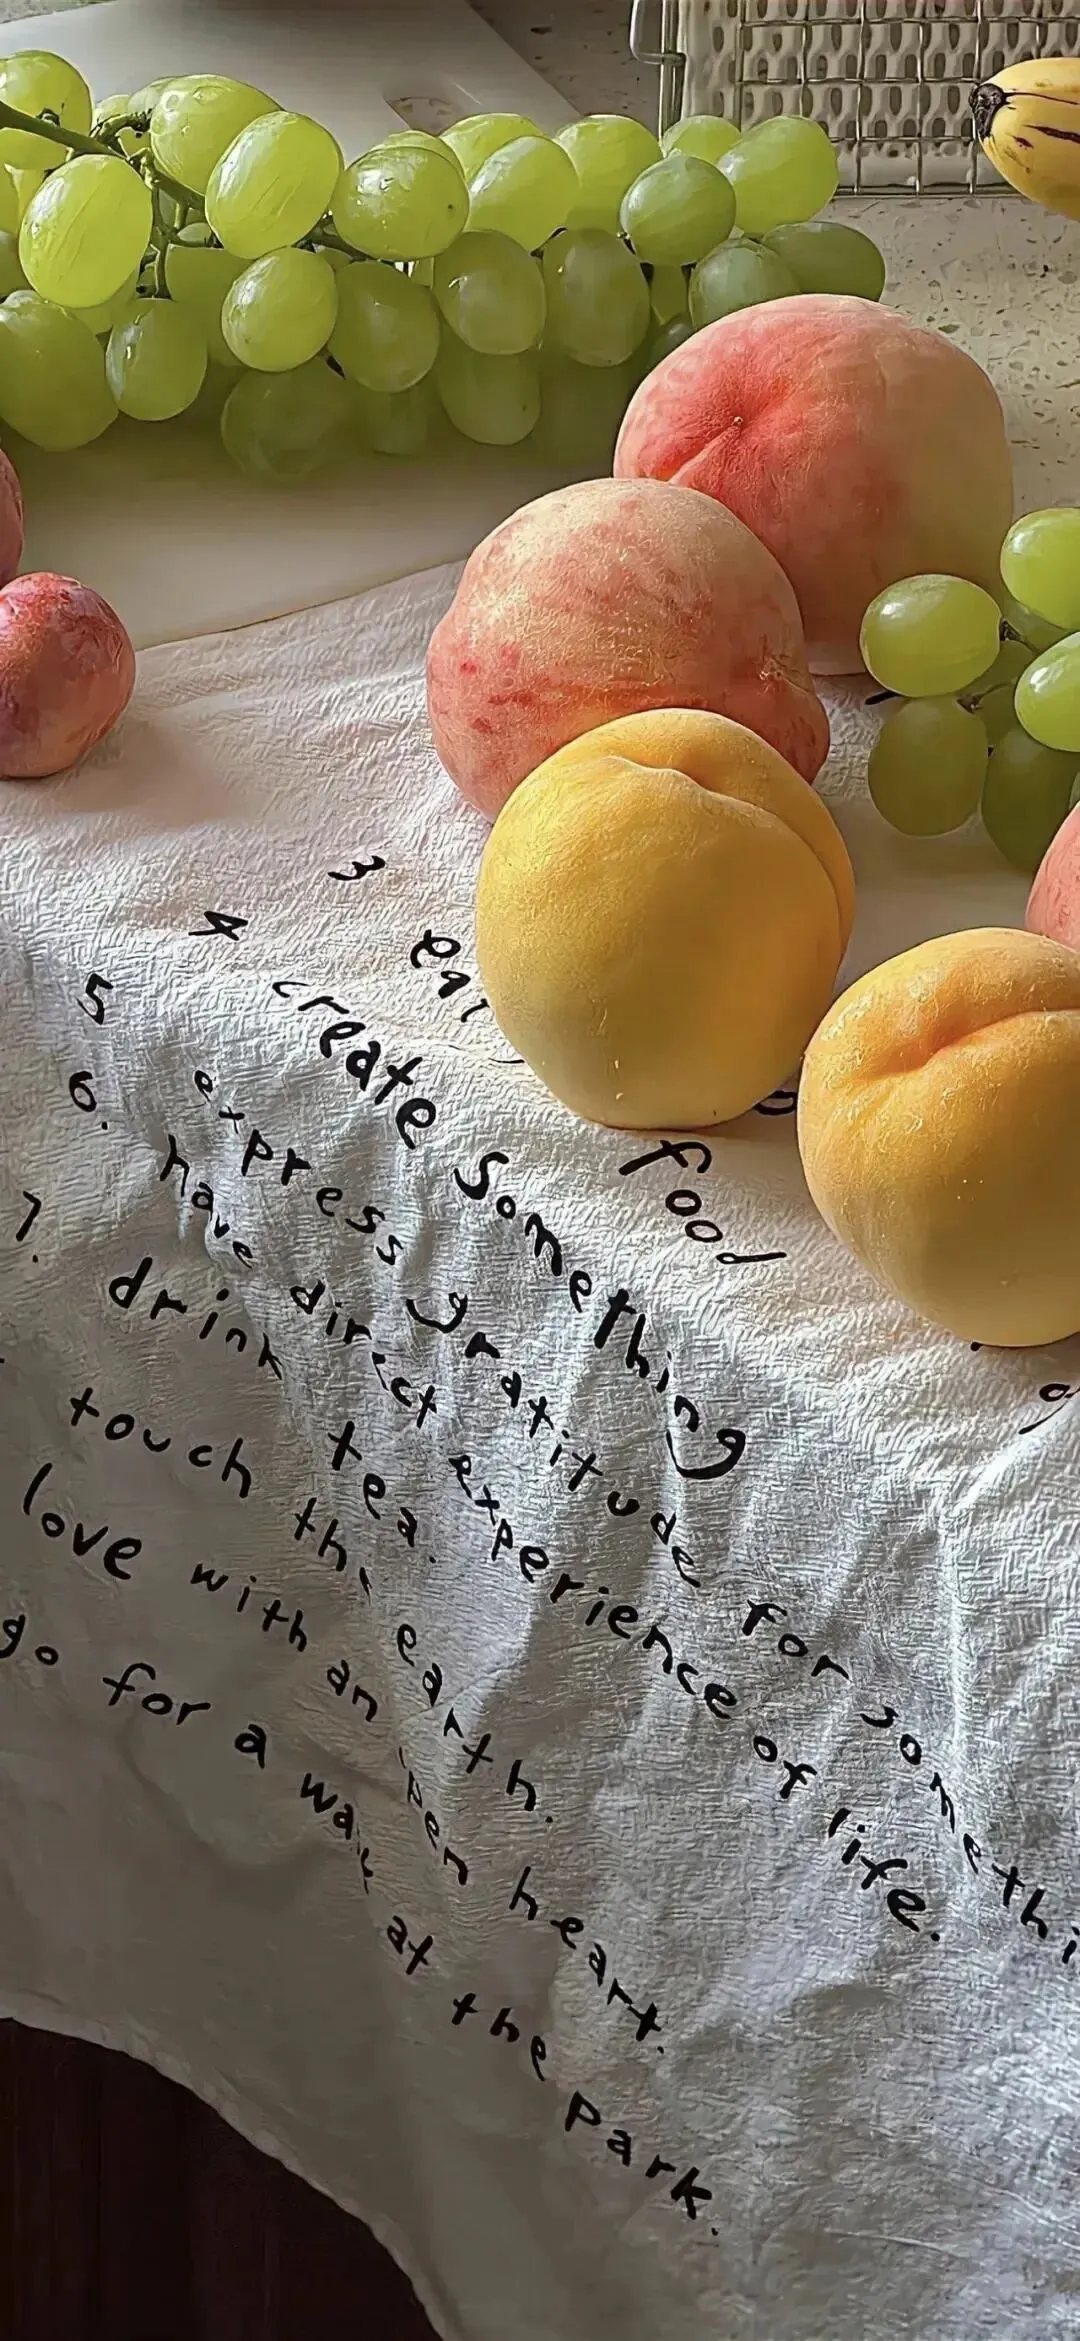 3 eat food
4 create something
5 express gratitude for
6. have direct experience of life.
7. drink tea.
touch the earth.
love with an open heart.
go for a walk at the park.